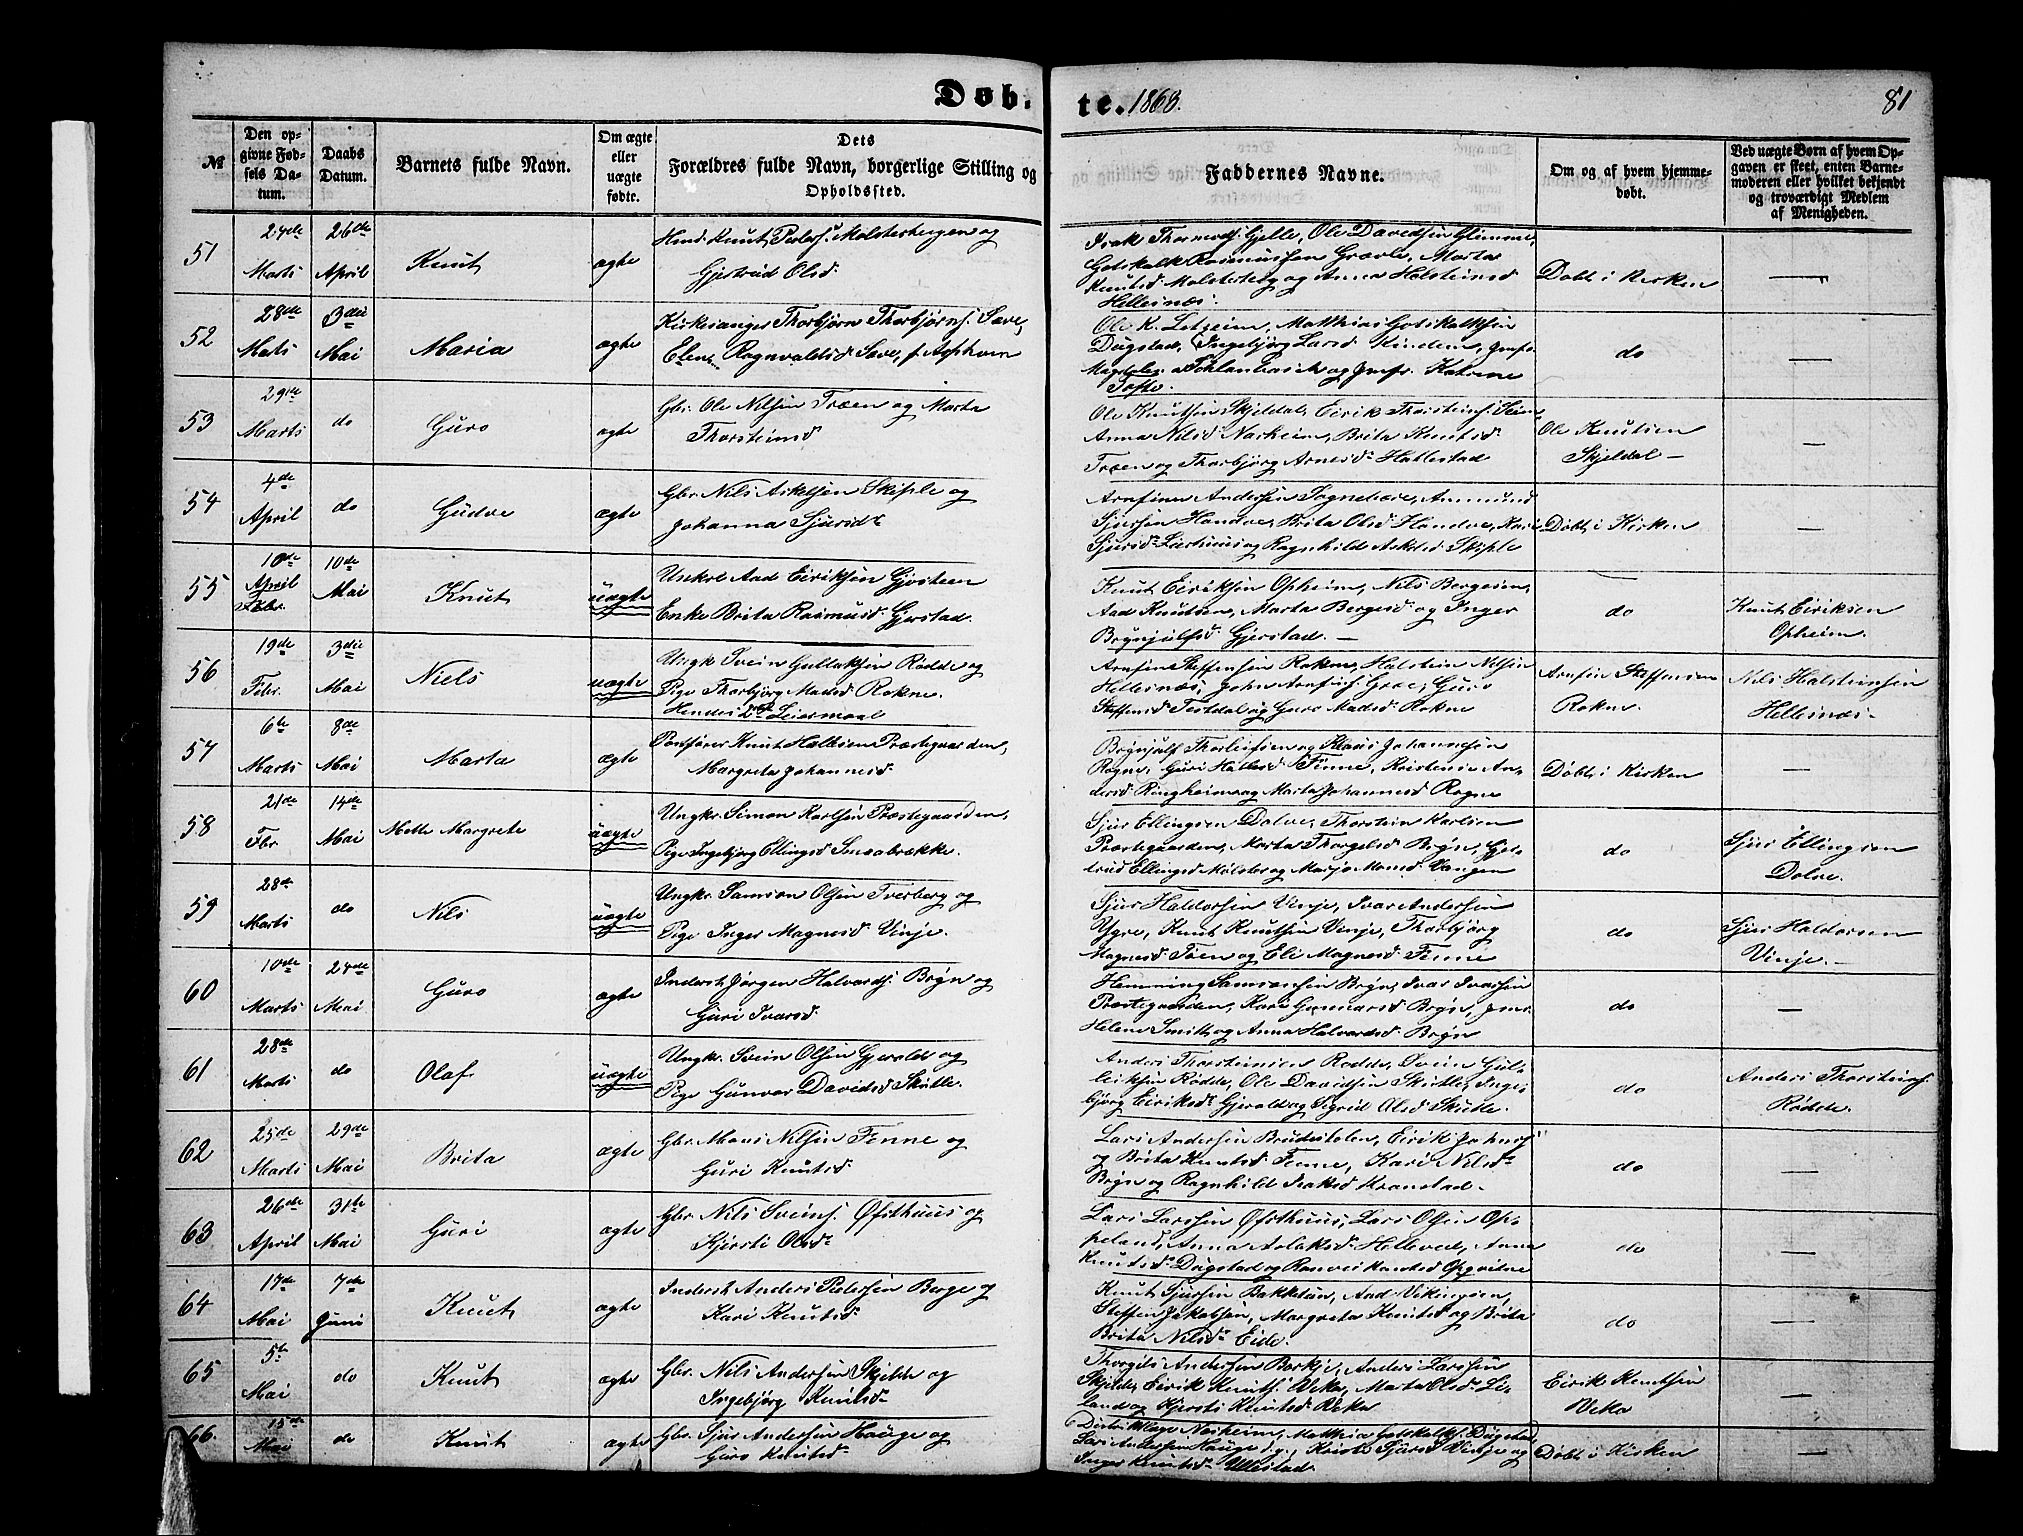 Døb. te. 1863. 81
№
Den opgivne Fødsels Datum.
Daabs Datum.
Barnets fulde Navn.
Om ægte eller uægte fødte.
Dets Forældres fulde Navn, borgerlige Stilling og Opholdssted.
Faddernes Navne.
Om og af hvem hjemmedøbt.
Ved uægte Børn af hvem Opgaven er skeet, enten Barnemoderen eller hvilket bekjendt og troværdigt Medlem af Menigheden.
51
Marts
26de April
Knut
ægte
Knut Peders. Molsterhugen og
Gjertrud Olsd
Isak Gjelle, Ole Davidsen Glimme,
Gotskalk Rasmussen Græve, Marta
Knutsd Molsterberg og Anna Halsteinsd
Hellesnæs.
Døbt i Kirken
—
52
28de Marts
3die Mai
Maria
ægte
Kirkesanger Thorbjørn Thorbjørns. Sæve,
Elen Ragnvaldsd Sæve, f. Asphem
Ole K. Lekeim, Matthias Gotskalksen
Dugstad, Ingebjørg Larsd Kindem, Jomfr.
og Jomfr. Katrine
Tofte.
do
—
53
29de Marts
do
Guro
ægte
Gbr. Ole Nilsen Træen og Marta
Thorsteinsd
Ole Knutsen Skjeldal, Eirik Thorsteins. Seim
Anna Nilsd Norheim, Brita Knutsd
Træen og Thorbjørg Arnesd Hallestad
Ole Knutsen
Skjeldal —
—
54
4de April
do
Gudve
ægte
Gbr. Nils Askelsen Skiple og
Johanna Sjursd
Arnfinn Andersen Sognehære, Ammund
Sjursen Handve, Brita Olsd Handve, Kari
Sjursd og Ragnhild Askelsd Skiple
Døbt i Kirken
—
55
10de April
Febr.
10de Mai
Knut
uægte
Unkrl Aad Eiriksen Gjosteen
Enke Brita Rasmusd. Gjerstad.
Knut Eiriksen Opheim, Nils Bergesen,
Aad Knutsen, Marta Bergesd og Inger
Brynjulfsd. Gjerstad. —
do
Knut Eiriksen
Opheim.
56
19de Febr.
3die Mai
Niels
uægte
Ungk Svein Gullaksen Rødde og
Pige Thorbjørg Madsd Rokne.
Hendes 2det Leiermaal
Arnfin Steffensen Rokne, Halstein Nilsen
Hellesnæs, John Arnfins. Græe, Guro
Steffensd Testdal og Guro Madsd Rokne
Arnfin Steffensen
Rokne.
Nils Halsteinsen
Hellesnæs.
57
6te Marts
8de Mai
Marta
ægte
Postfører Knut Hallesen Præstegaarden,
Margreta Johannesd
Brynjulf Thorleifsen og Klaus Johannesen
Rogne, Guri Hallesd Finne, Kristense An-
dersd Ringheim og Marta Johannesd Rogne
Døbt i Kirken
—
58
21de Fbr
14de Mai
Mette Margrete
uægte
Ungkr. Simon Karlsen Præstegaarden,
Pige Ingebjørg Ellingsd Smaabrække.
Sjur Ellingsen Dolve, Thorstein Karlsen
Præstegaarden, Marta Thorgelsd Bryn, Gjer-
trud Ellingsd Molster og Marja Monsd Vangen
do
Sjur Ellingsen
Dolve.
59
28de Marts
do
Nils
uægte
Ungkr. Samson Olsen Tverberg og
Pige Inger Magnesd Vinje.
Sjur Haldorsen Vinje, Ivar Andersen
Ygre, Knut Knutsen Vinje, Thorbjørg
Magnesd Tøen og Eli Magnesd Finne
do
Sjur Haldorsen
Vinje. —
60
10de Marts
24de Mai
Guro
ægte
Inderst Jørgen Halvards. Bryn og
Guri Ivarsd
Hemming Samsonsen Bryn, Ivar Ivarsen
Præstegaarden, Kari Gunnarsd Bryn, Jomfr
Helene Smitt og Anna Halvardsd Bryn
do
—
61
28de Marts
do
Olaf
uægte
Ungkr. Svein Olsen Gjerald og
Pige Gunvor Davidsd Skutle.
Anders Thorsteinsen Rødde, Svein Gul-
leiksen Rødde, Ole Davidsen Skutle, Inge-
bjørg Eiriksd Gjerald og Sigrid Olsd Skutle.
do
Anders Thorsteins.
Rødde.
62
25de Marts
29de Mai
Brita
ægte
Gbr. Mons Nilsen Finne og
Guri Knutsd
Lars Andersen Brudestolen, Eirik Johns.
og Brita Knutsd Finne, Kari Nilsd
Bryn og Ragnhild Isaksd Kronstad.
do
—
63
26de April
31te Mai
Guri
ægte
Gbr. Nils Sveins. Øfsthuus og
Kjersti Olsd
Lars Larssen Øfsthuus, Lars Olsen Op-
peland, Anna Aslaksd Helleved, Anna
Knutsd Dugstad og Ranvei Knutsd
do
—
64
17de Mai
7de Juni
Knut
ægte
Inderst Anders Pedersen Berge og
Kari Knutsd
Knut Sjursen Bakketun, Aad Vikingsen,
Steffen Jakobsen, Margreta Knutsd og Brita
Brita Nilsd Eide.
do
—
65
5te Mai
do
Knut
ægte
Gbr. Nils Andersen Skjelde og
Ingebjørg Knutsd
Thorgils Andersen Børkje, Anders Larssen
Skjelde, Eirik Knuts. Væka, Marta Olsd Li-
land og Kjersti Knutsd Væka
Eirik Knutsen
Væka
—
66.
15de Mai
do
Knut
ægte
Gbr. Sjur Andersen Hauge og
Guro Knutsd
Distriktslæge Norheim, Matthias Gotskalks. Dugstad,
Lars Andersen Hauge, Knut Sjursd Vinje og
Inger Knutsd Ullestad
Døbt i Kirken
—